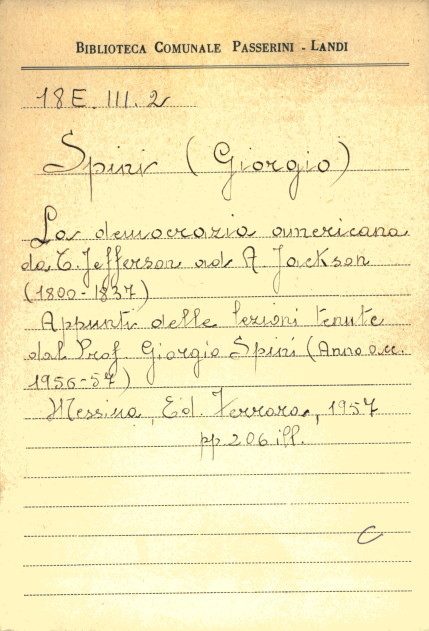 BIBLIOTECA COMUNALE PASSERINI - LANDI
18E. III. 2
Spini (Giorgio)
La democrazia americana
da T. Jefferson ad A. Jackson
(1800-1837)
Appunti delle lezioni tenute
dal Prof. Giorgio Spini (Anno acc.
1956-57)
Messina, Ed. Ferrara, 1957
pp. 206 ill.
C